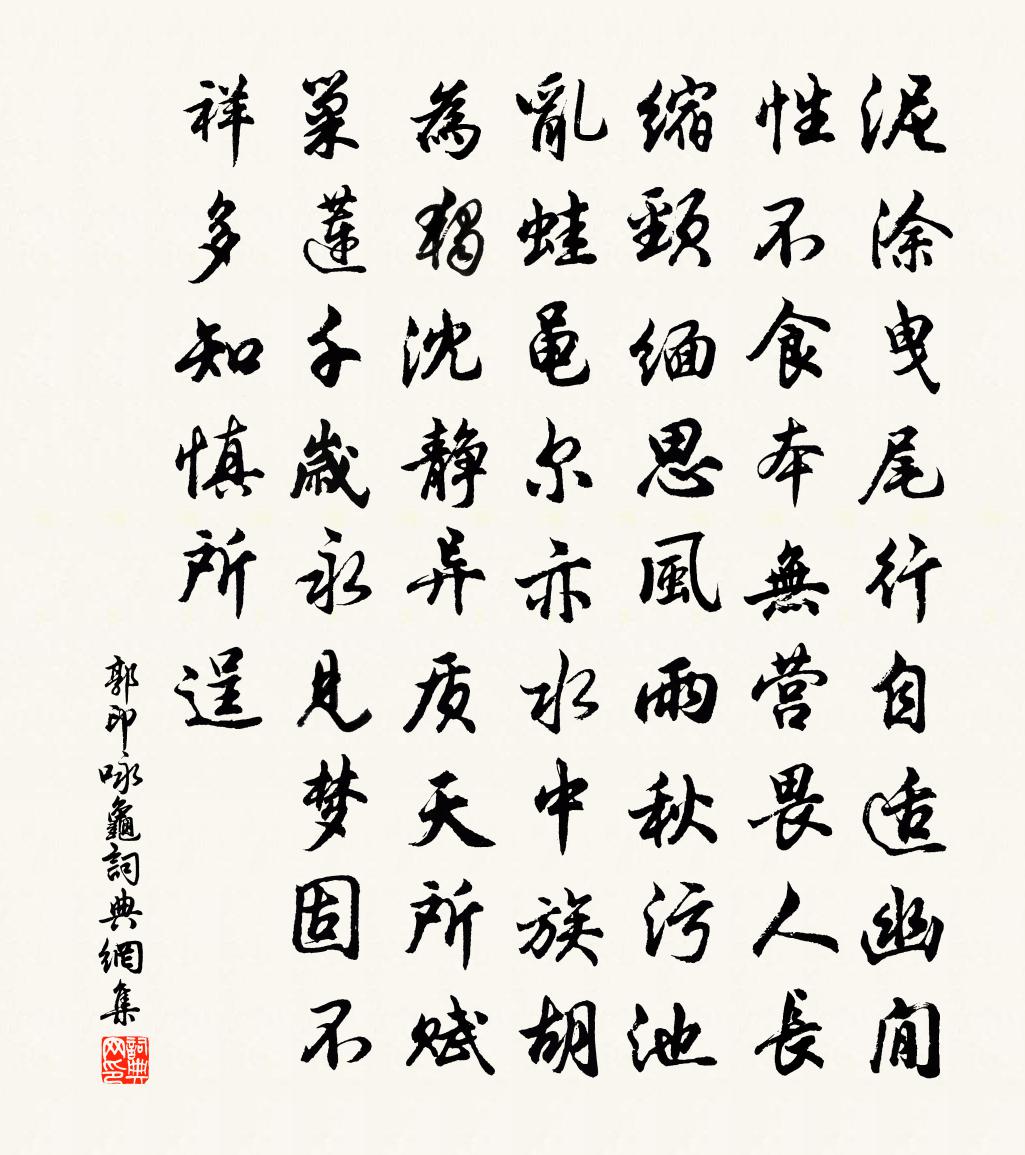 泥涂曳尾行自适幽闲
性不食本無营畏人長
缩頸缅思風雨秋污池
亂蛙黾尔亦水中族胡
為獨沈静异质天所赋
巢莲千歲永見梦固不
祥多知慎所逞
郭印咏龜詞典網集
詞典网印